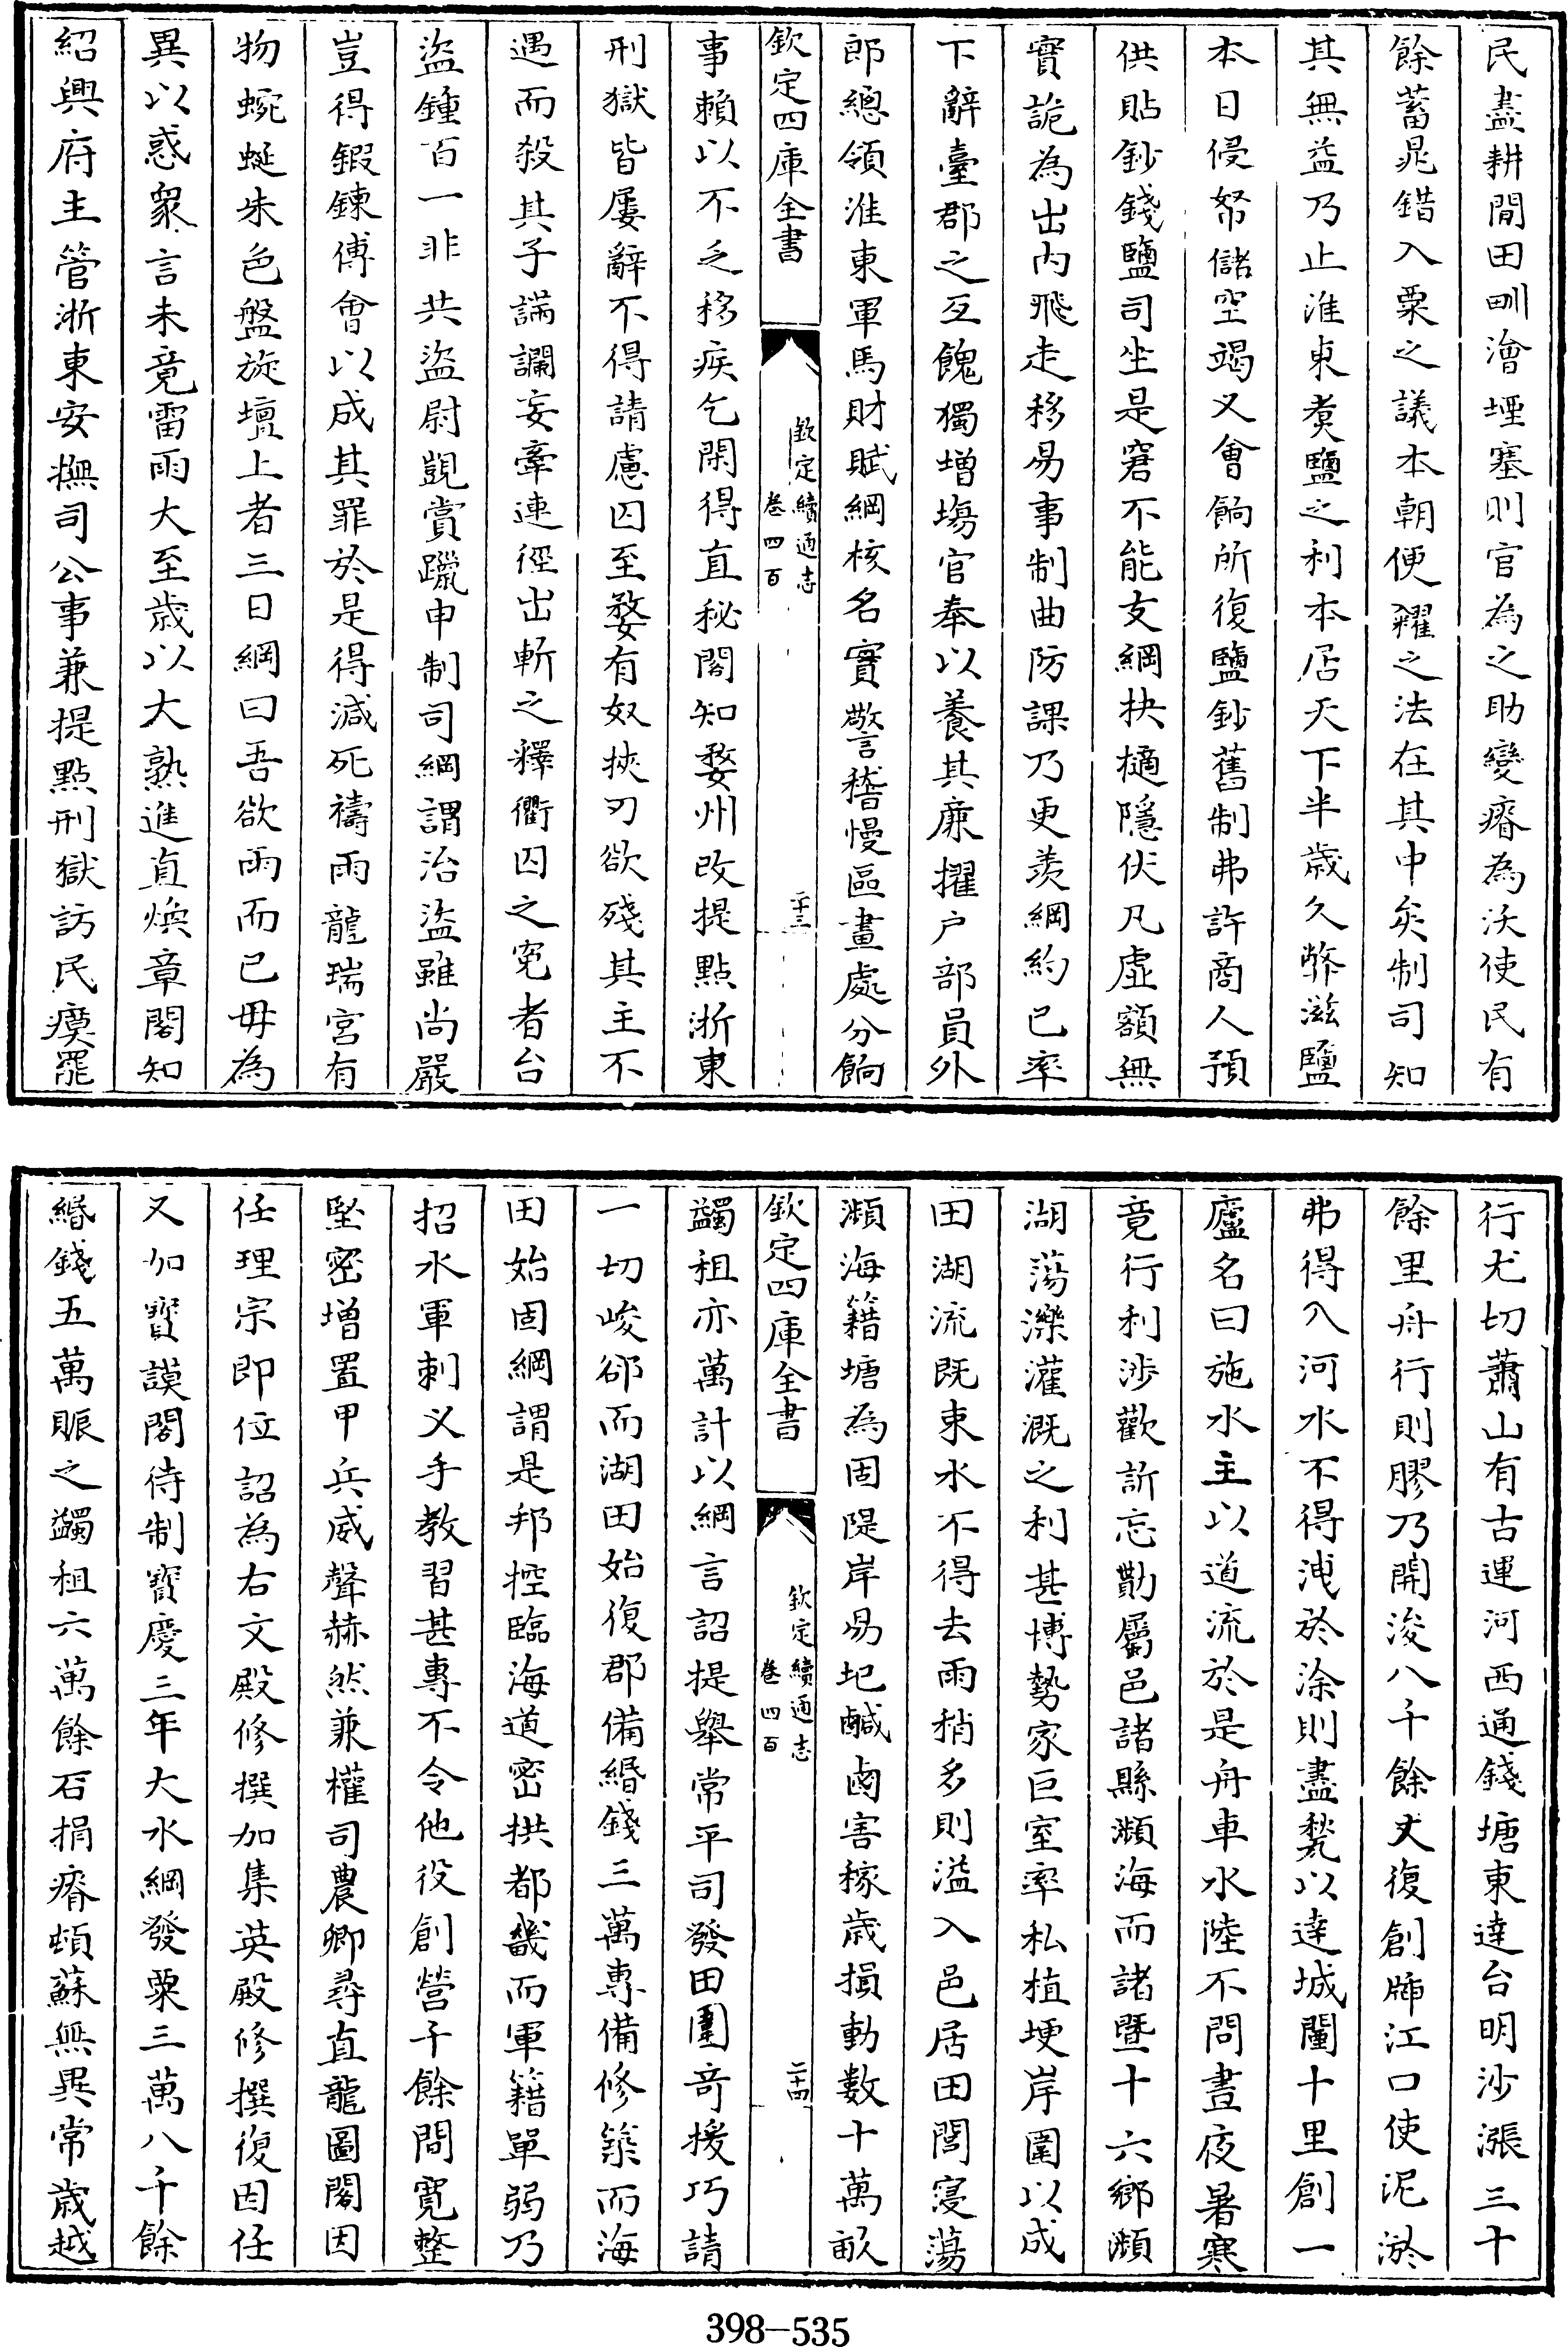 民盡耕閒田甽澮堙塞則官為之助變瘠為沃使民有
餘蓄晁錯入粟之議本朝便糴之法在其中矣制司知
其無益乃止淮東煑鹽之利本居天下半歲久弊滋鹽
本日侵帑儲空竭又會餉所復鹽鈔舊制弗許商人預
供貼鈔錢鹽司坐是窘不能支綱抉擿隱伏凡虛額無
實詭為出內飛走移易事制曲防課乃更羨綱約己率
下辭臺郡之互餽獨增塲官奉以養其亷擢户部員外
郎總領淮東軍馬財賦綱核名實警稽慢區畫處分餉
欽定四庫全書
欽定續通志
卷四百
二十三
事賴以不乏移疾乞閑得直秘閣知婺州改提點浙東
刑獄皆屢辭不得請慮囚至婺有奴挾刃欲殘其主不
遇而殺其子讕讕妄牽連徑出斬之釋衢囚之寃者台
盗鍾百一非共盗尉覬賞躐申制司綱謂治盗雖尚嚴
豈得鍛鍊傅會以成其罪於是得減死禱雨龍瑞宮有
物蜿蜒朱色盤旋壇上者三日綱曰吾欲雨而已毋為
異以惑衆言未竟雷雨大至歲以大熟進直煥章閣知
紹興府主管浙東安撫司公事兼提點刑獄訪民瘼罷
行尤切蕭山有古運河西通錢塘東達台明沙漲三十
餘里舟行則膠乃開浚八千餘丈復創牐江口使泥淤
弗得入河水不得洩於涂則盡甃以達城闉十里創一
廬名曰施水主以道流於是舟車水陸不問晝夜暑寒
竟行利涉歡訢忘勩屬邑諸縣瀕海而諸暨十六鄉瀕
湖蕩濼灌溉之利甚博勢家巨室率私植埂岸圍以成
田湖流既束水不得去雨稍多則溢入邑居田閭寖蕩
瀕海藉塘為固隄岸易圮鹹鹵害稼歲損動數十萬畝
欽定四庫全書
欽定續通志
卷四百
二十四
蠲租亦萬計以綱言詔提舉常平司發田園奇援巧請
一切峻郤而湖田始復郡備緡錢三萬專備修築而海
田始固綱謂是邦控臨海道密拱都畿而軍籍單弱乃
招水軍刺乂手教習甚專不令他役創營千餘間寛整
堅密增置甲兵威聲赫然兼權司農卿尋直龍圖閣因
任理宗即位詔為右文殿修撰加集英殿修撰復因任
又加寶謨閣待制寶慶三年大水綱發粟三萬八千餘
緡錢五萬賑之蠲租六萬餘石捐瘠頓蘇無異常歲越
398-535